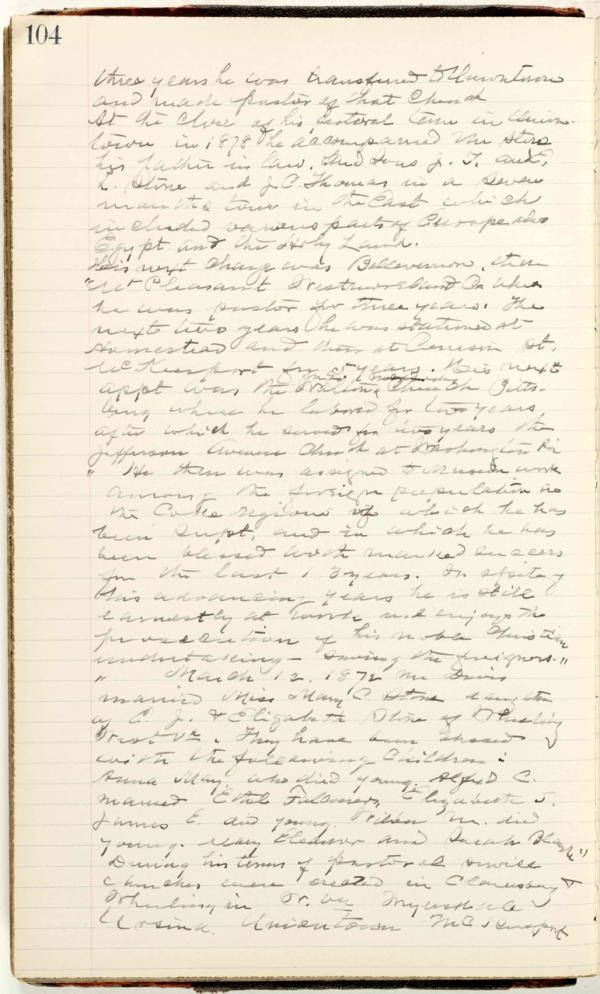 104
three years he was transferred to Uniontown
and made pastor of that Church
At the close of his pastoral term in Union-
town in 1878 he accompanied Mr Stone
his father in law, and sons J. T. and
E. Stone and J. C. Thomas in a seven
months tour in the East which
included various parts of Europe also
Egypt and the Holy Land.
His next charge was Bellevernon, then
"Mt Pleasant Westmoreland Co where
he was pastor for three years. The
next two years he was stationed at
Homestead and then at St.
McKeesport for 5 years. His next
appt was the Church Pitts-
burg where he labored for two years,
after which he served for two years the
Jefferson Avenue Church at Washington Pa
" He then was assigned to mission work
among the foreign population in
the Coke regions of which he has
been supt. and in which he has
been blessed with marked success
for the last 13 years. In spite of
his advancing years he is still
earnestly at work and enjoys the
prosecution of his noble Christian
undertaking - saving the foreigners."
" March 12. 1872 Mr Davis
married Miss Mary C. Stone daughter
of C. J. & Elizabeth Stone of Wheeling
West Va. They have been blessed
with the following Children:
Anna May who died young. Alfred C.
married Ethel Elizabeth J.
James E. died young. Wilson M. died
young. Mary Eleanor and Sarah "
"During his terms of pastoral service
churches were erected in &
Wheeling in W. Va
Ursina. Uniontown McKeesport